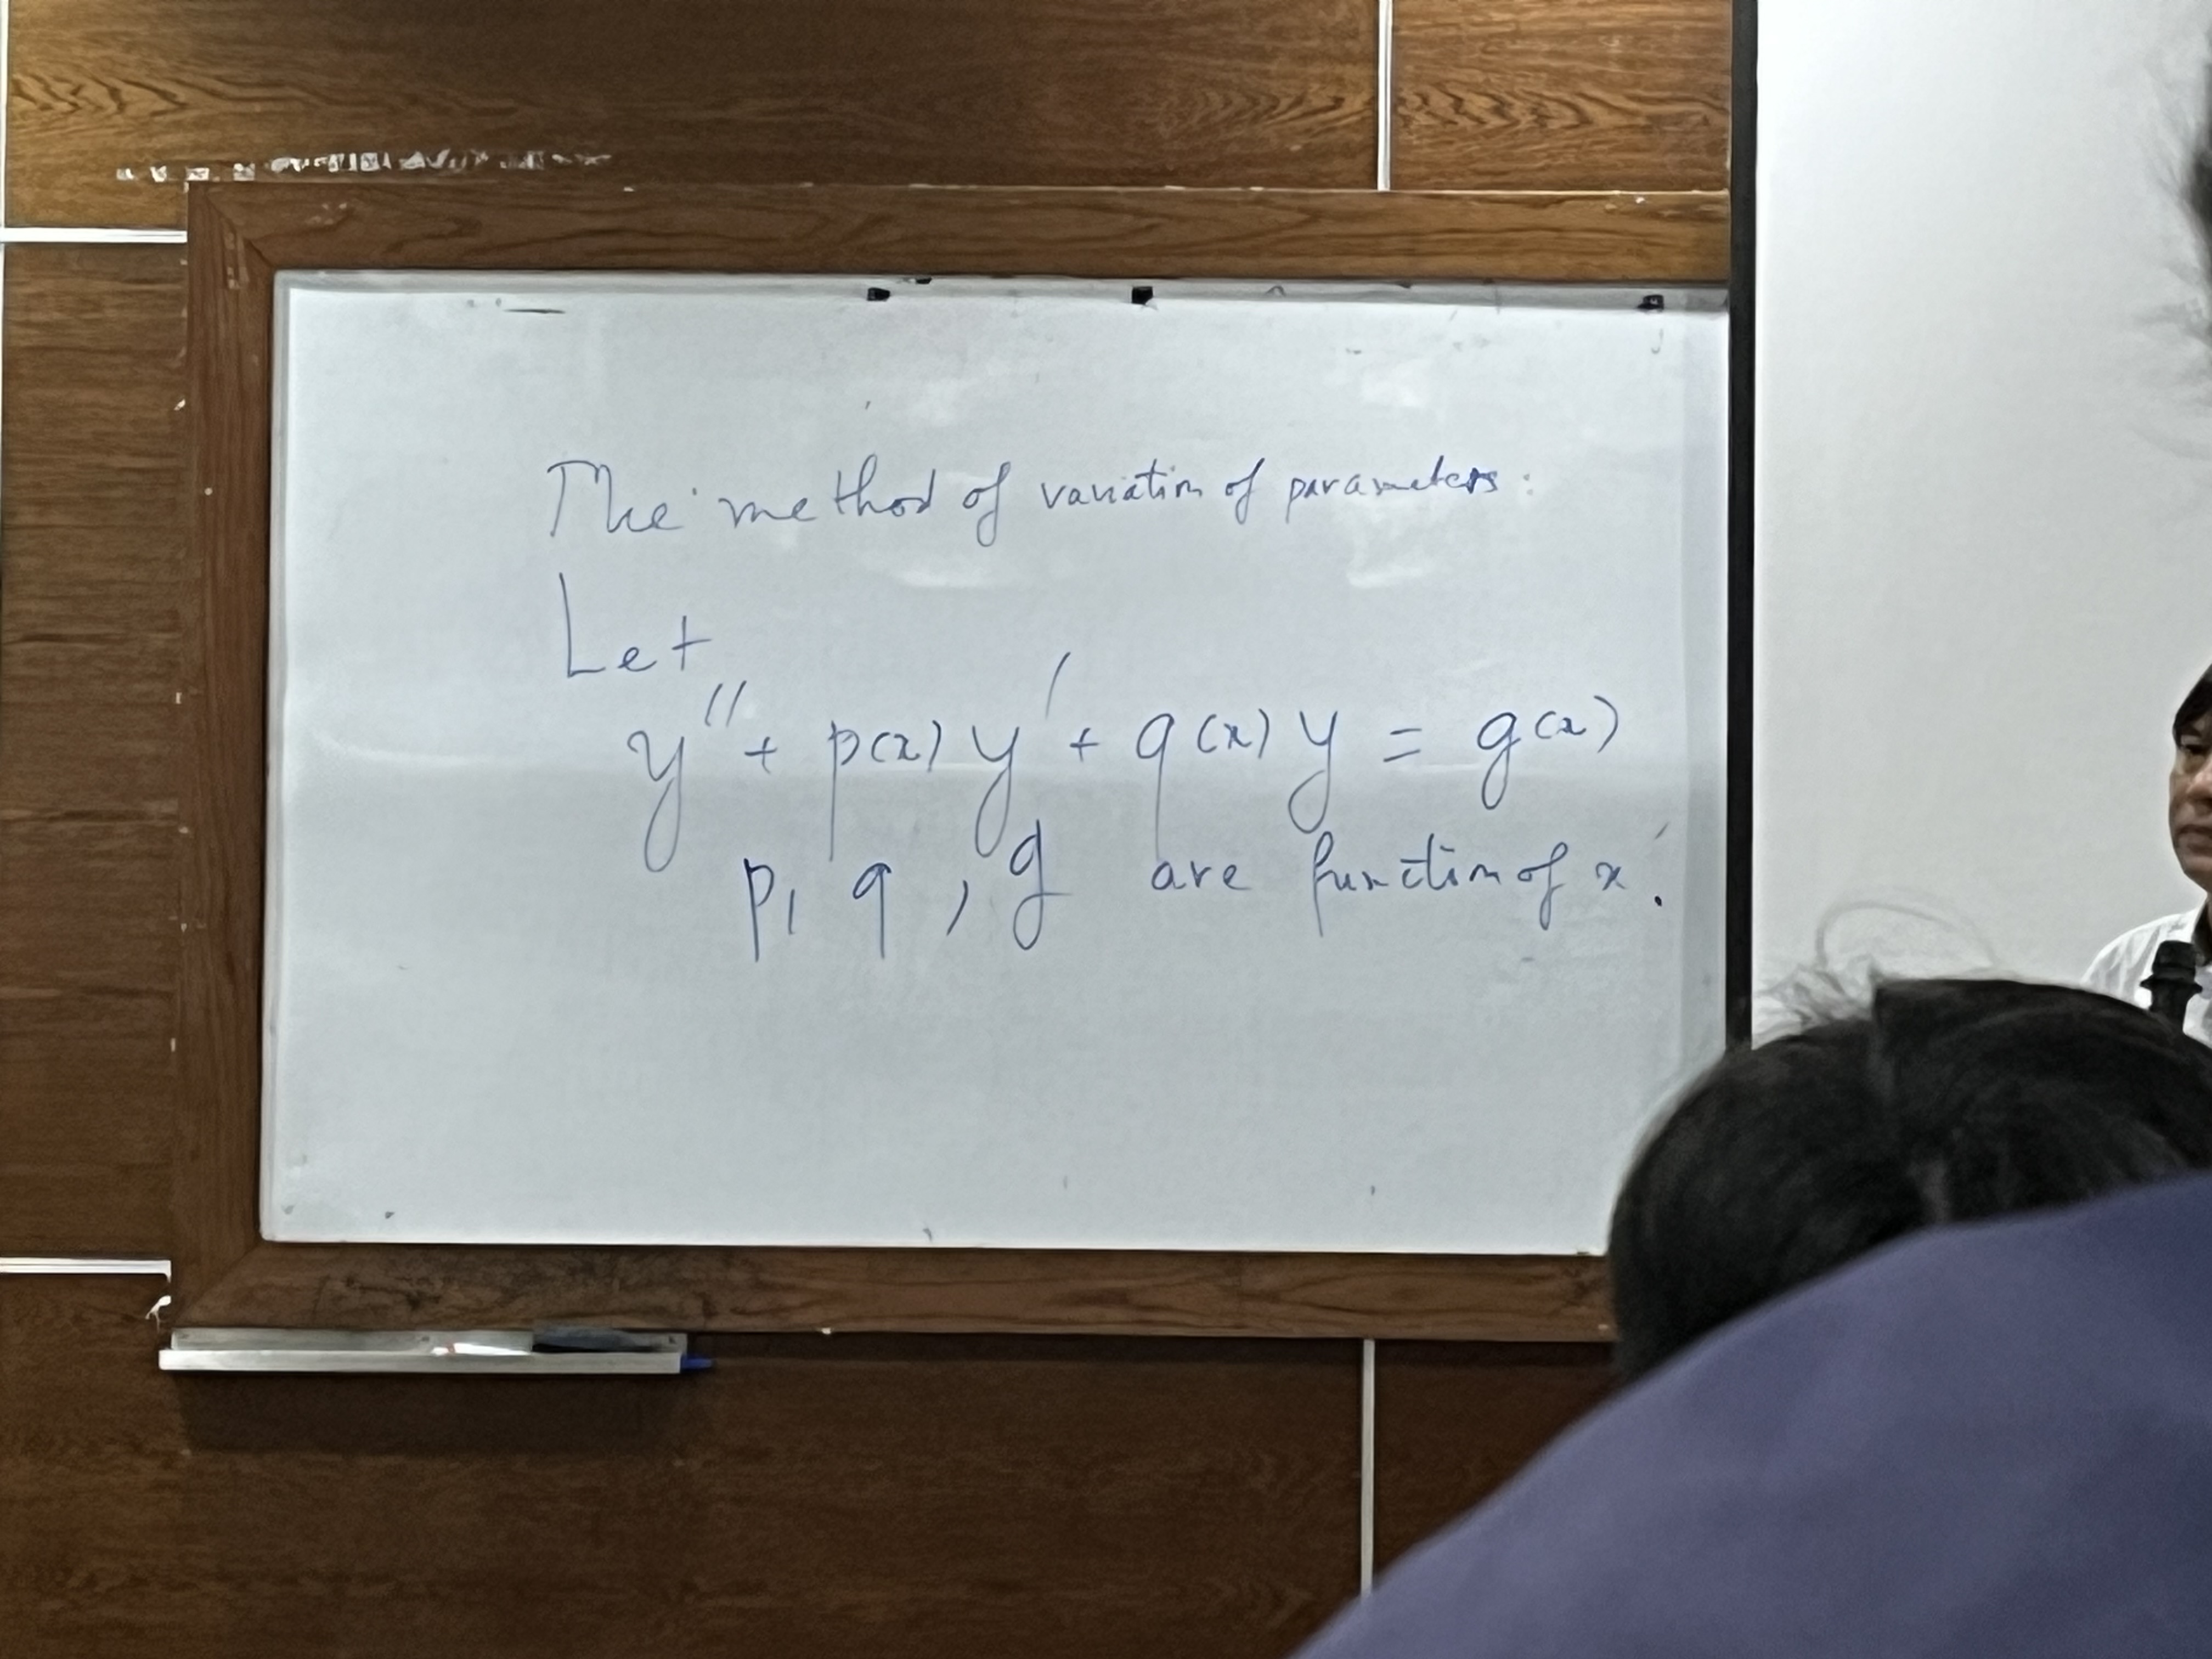 The method of variation of parameters:
Let
y'' + p(x) y' + q(x) y = g(x)
p, q, g are function of x.